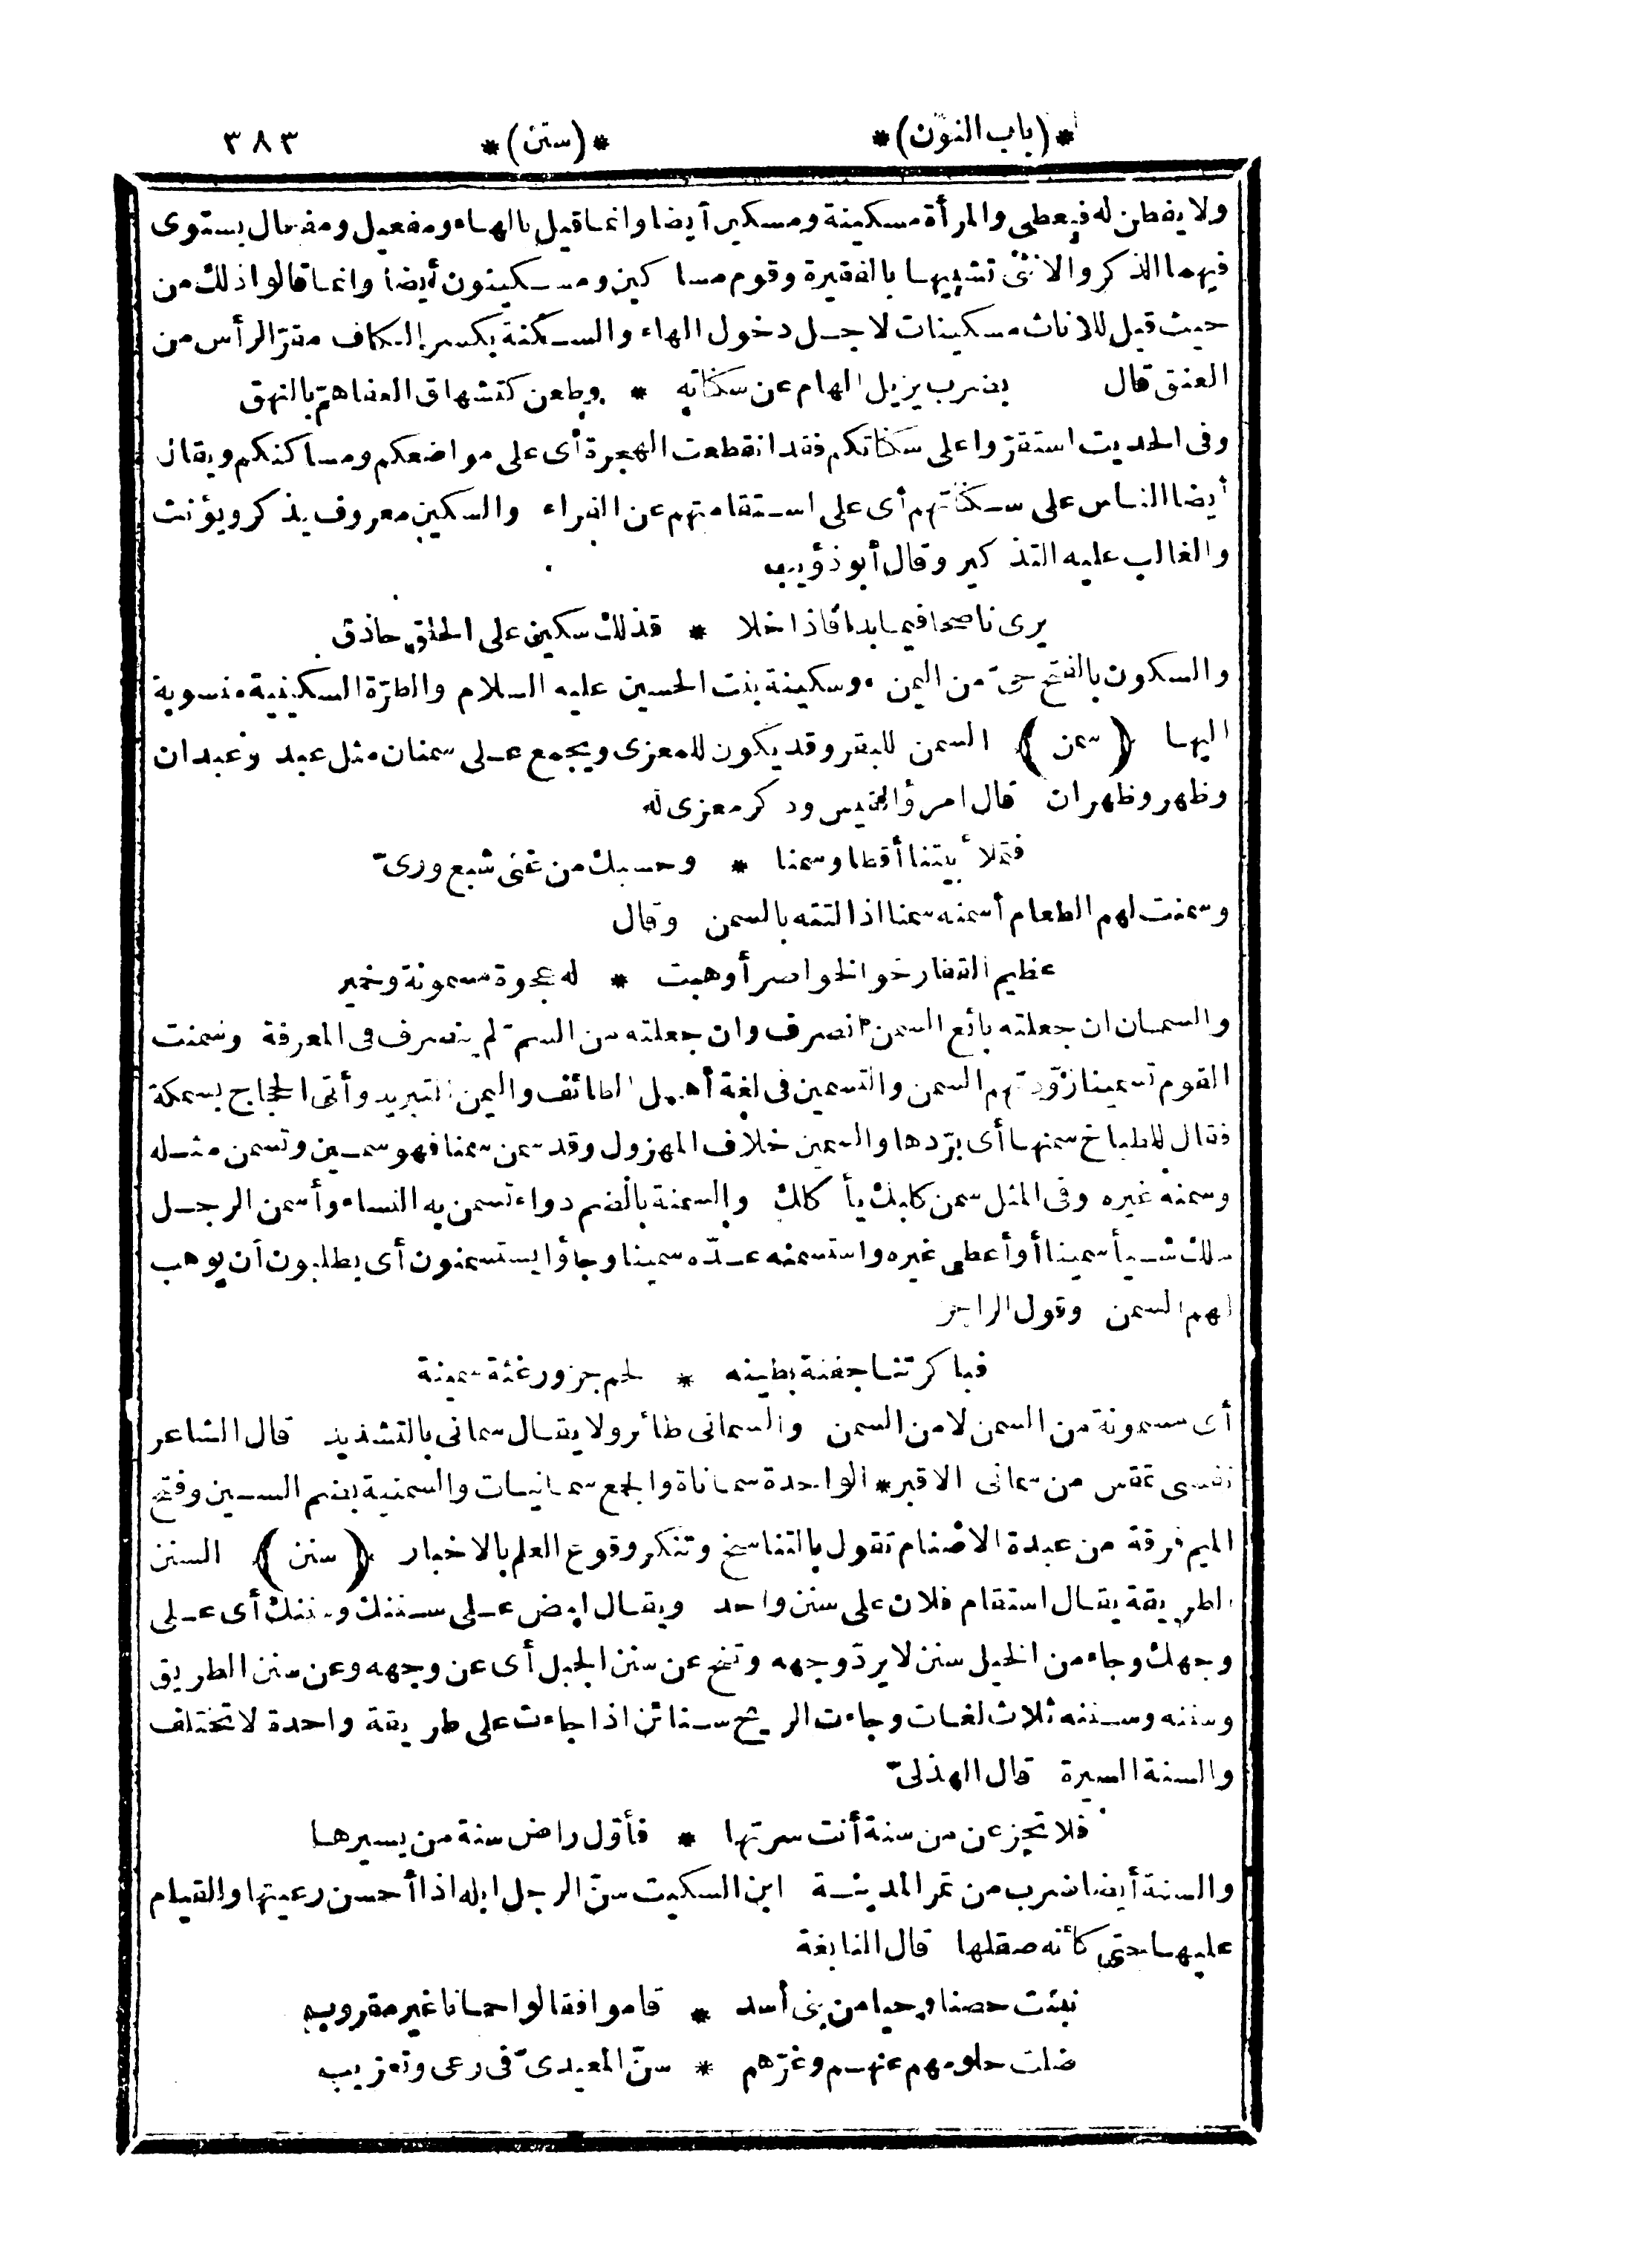 *(باب النون)* *(سنن)* ٣٨٣
ولا يفطن له فيعطى والمرأة مسكينة ومسكين أيضا وانما قيل بالهاء ومفعيل ومفعال يستوى
فيهما الذكر والانثى تشبيها بالفقيرة وقوم مساكين ومسكينون أيضا وانما قالوا ذلك من
حيث قيل للاناث مسكينات لاجل دخول الهاء والسكنة بكسر الكاف مقرّ الرأس من
العنق قال بضرب يزيل الهام عن سكناته * وطعن كتشهاق العفا همّ بالنهق
وفى الحديث استقرّوا على سكناتكم فقد انقطعت الهجرة أى على مواضعكم ومساكنكم ويقال
أيضا الناس على سكناتهم أى على استقامتهم عن الفراء والسكين معروف يذكر ويؤنث
والغالب عليه التذكير وقال أبو ذؤيب
يرى ناصحا فيما بدا فاذا خلا * فذلك سكين على الحلق حاذق
والسكون بالفتح حىّ من اليمن وسكينة بنت الحسين عليه السلام والطرّة السكينية منسوبة
اليها (سمن) السمن للبقر وقد يكون للمعزى ويجمع على سمنان مثل عبد وعبدان
وظهر وظهران قال امرؤ القيس وذكر معزى له
فتملأ بيتنا أقطا وسمنا * وحسبك من غنى شبع ورىّ
وسمنت لهم الطعام أسمنه سمنا اذا لتته بالسمن وقال
عظيم القفا رخو الخواصر أوهبت * له عجوة مسمونة وخمير
والسمان ان جعلته بائع السمن انصرف وان جعلته من السمّ لم ينصرف فى المعرفة وسمنت
القوم تسمينا زوّدتهم السمن والتسمين فى لغة أهل الطائف واليمن التبريد وأتى الحجاج بسمكة
فقال للطباخ سمنها أى برّدها والسمين خلاف المهزول وقد سمن سمنا فهو سمين وتسمن مثله
وسمنه غيره وفى المثل سمن كلبك يأكلك والسمنة بالضم دواء تسمن به النساء وأسمن الرجل
ملك شيأ سمينا أو أعطى غيره واستسمنه عدّه سمينا وجاؤا يستسمنون أى يطلبون أن يوهب
لهم السمن وقول الراجز
فباكرتنا جفنة بطينه * لحم جزور غثة سمينة
أى مسمونة من السمن لا من السمن والسمانى طائر ولا يقال سمانى بالتشديد قال الشاعر
نفسى تمقس من سمانى الاقبر * الواحدة سماناة والجمع سمانيات والسمنية بضم السين وفتح
الميم فرقة من عبدة الاصنام تقول بالتناسخ وتنكر وقوع العلم بالاخبار (سنن) السنن
الطريقة يقال استقام فلان على سنن واحد ويقال امض على سننك وسننك أى على
وجهك وجاء من الخيل سنن لا يردّ وجهه وتنح عن سنن الجبل أى عن وجهه وعن سنن الطريق
وسننه وسننه ثلاث لغات وجاءت الريح سنائن اذا جاءت على طريقة واحدة لا تختلف
والسنة السيرة قال الهذلىّ
فلا تجزعن من سنة أنت سرتها * فأوّل راض سنة من يسيرها
والسنة أيضا ضرب من تمر المدينة ابن السكيت سنّ الرجل ابله اذا أحسن رعيتها والقيام
عليها حتى كأنه صقلها قال النابغة
نبئت حصنا وحيا من بنى أسد * قاموا فقالوا حمانا غير مقروب
ضلت حلومهم عنهم وغرّهم * سنّ المعيدىّ فى رعى وتعزيب